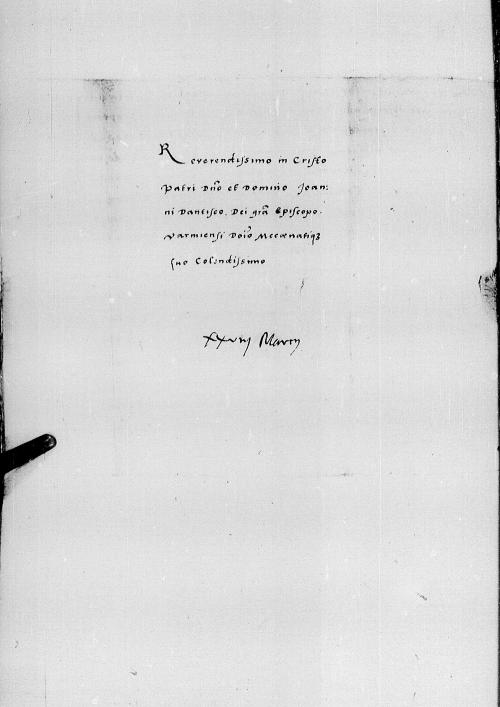 Reverendissimo in Cristo
Patri Dno et Domino Joan:
ni Dantisco. Dei gra Episcopo
Varmiensi Doio Mecoenatiqȝ
suo Colendissimo
xxvij Marcij